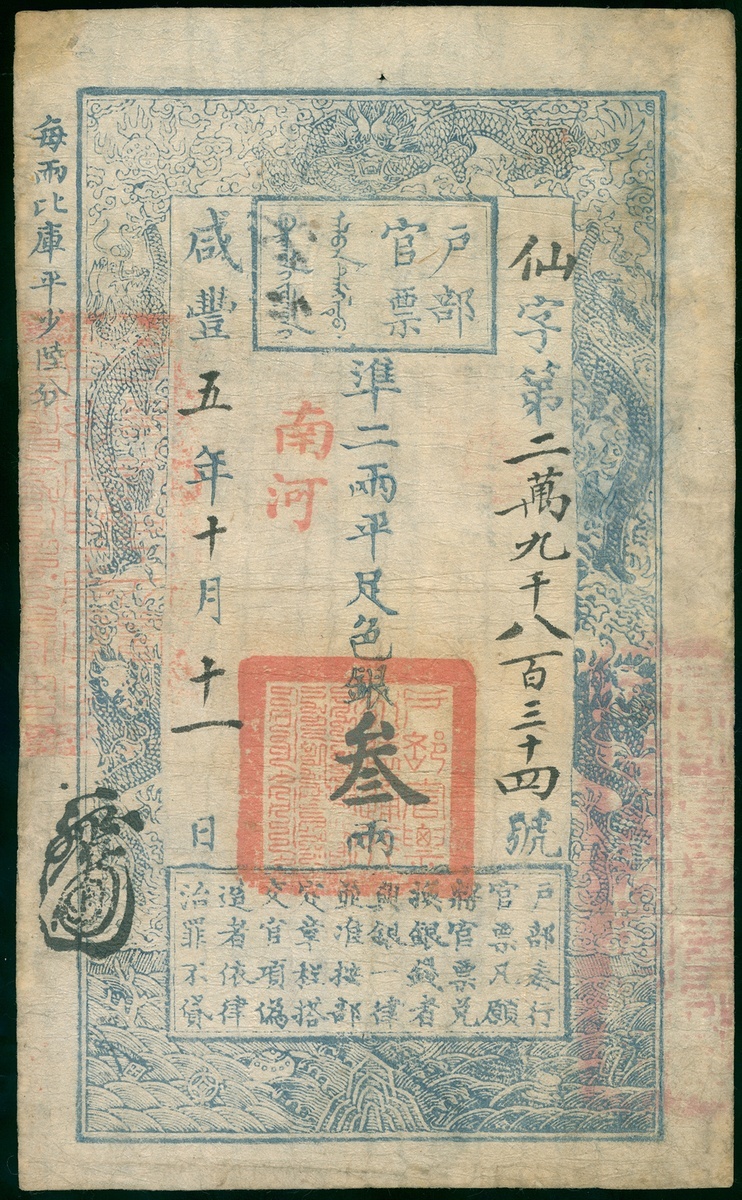 戶部
官票
仙字第二萬九千八百三十四號
準二兩平足色銀叁兩
南河
咸豐五年十月十一日
每兩比庫平少陸分
戶部奏行
官票凡願
將官票兌
換銀錢者
與銀一律
並准按部
定章程搭
交官項偽
造者依律
治罪不貸